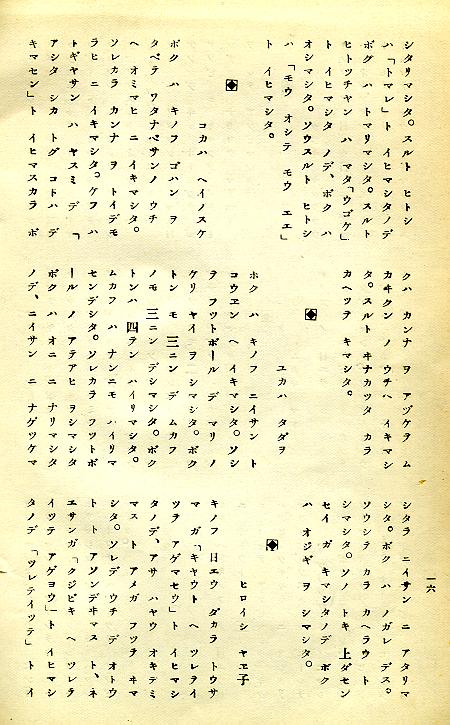 シタリマシタ。スルト ヒトシ
ハ「トマレ」ト イヒマシタノデ
ボク ハ トマリマシタ。スルト
ヒトツチヤン ハ マタ「ウゴケ」
ト イヒマシタ ノデ、ボク ハ
オシマシタ。ソウスルト ヒトシ
ハ 「モウ オシテ モウ エエ」
ト イヒマシタ。
コカハ ヘイノスケ
ボク ハ キノフ ゴハン ヲ
タベテ ワタナベサンノ ウチ
ヘ オミマヒ ニ イキマシタ。
ソレカラ カンナ ヲ トイデモ
ラヒ ニ イキマシタ。ケフ ハ
トギヤサン ハ ヤスミ デ 「
アシタ シカ トグ コトハ デ
キマセン」ト イヒマスカラ ボ
クハ カンナ ヲ アヅケテ ム
カヰクン ノ ウチヘ イキマシ
タ。スルト ヰナカツタ カラ
カヘツテ キマシタ。
ユカハ タダヲ
ボク ハ キノフ ニイサン ト
コウヱン ヘ イキマシタ。ソシ
テ フツトボール デ マリ ノ
ケリ ヤイ ヲ シマシタ。ボク
トン モ 三ニン デ ムカフ
ノモ 三ニン デシマシタ。ボク
トンハ 四テン ハイリマシタ。
ムカフ ハ ナンニモ ハイリマ
センデシタ。ソレカラ フツトボ
ール ノ アテアヒ ヲシマシタ
ボク ハ オニ ニ ナリマシタ
ノデ、ニイサン ニ ナゲツケマ
シタラ ニイサン ニ アタリマ
シタ。ボク ハ ノガレ デス。
ソウシテ カラ カヘラウ ト
シマシタ。ソノ トキ 上ダセン
セイ ガ キマシタノデ ボク
ハ オジギ ヲ シマシタ。
ヒロイシ ヤヱ子
キノフ 日エウ ダカラ トウサ
マ ガ「キヤウト ヘ ツレテイ
ツテ アゲマセウ」ト イヒマシ
タノデ、アサ ハヤウ オキテミ
マス ト アメガ フツテ ヰマ
シタ。ソレデ ウチ デ オトウ
ト ト アソンデヰマス ト、ネ
エサンガ「クジビキ ヘ ツレテ
イツテ アゲヨウ」ト イヒマシ
タノデ 「ツレテイツテ」ト イ
一六